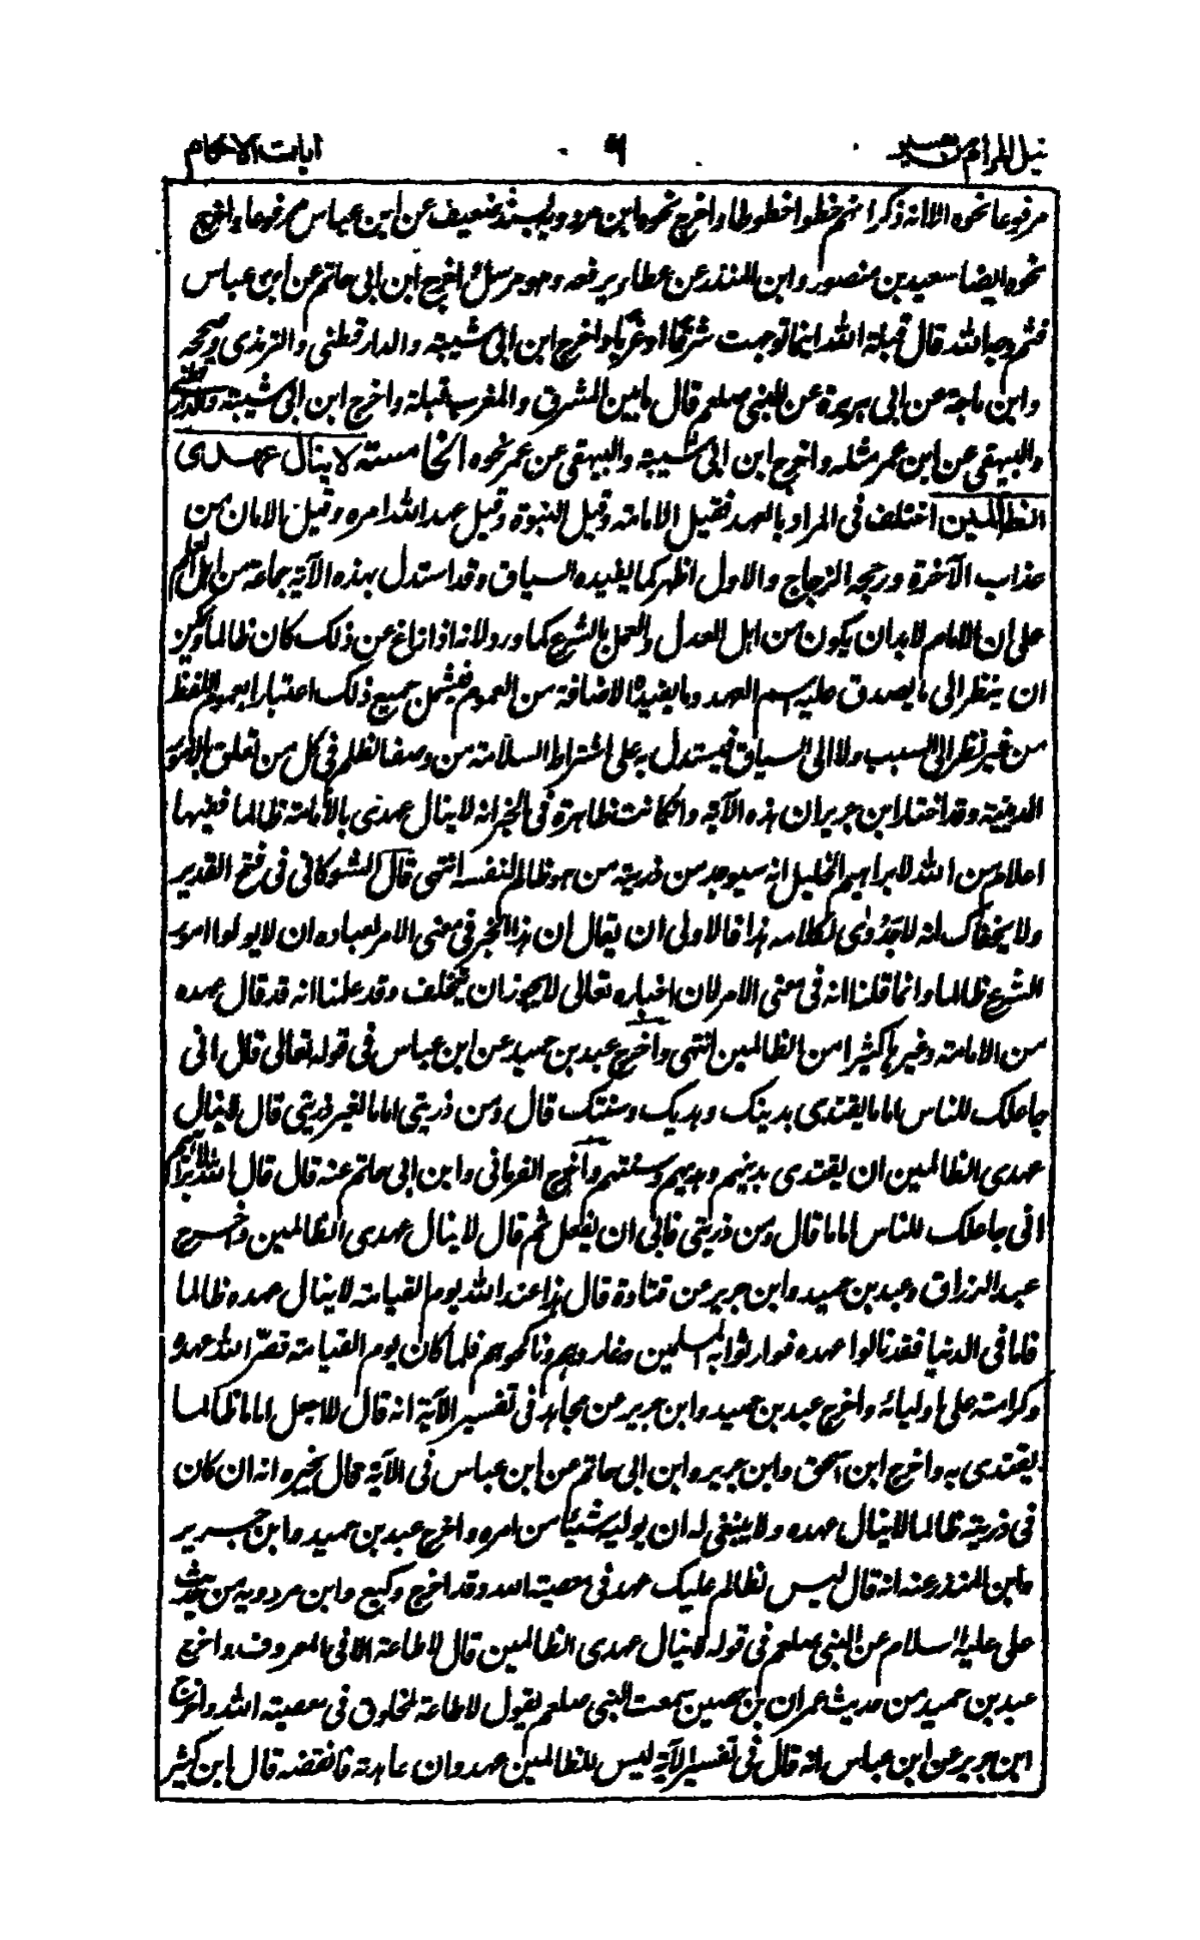 نيل المرام من تفسير ٩ آيات الاحكام
مرفوعا نحوه الا انه ذكر انهم خطوا خطوطا واخرج نحوه ابن مردويه بسند ضعيف عن ابن عباس مرفوعا واخرج
نحوه ايضا سعيد بن منصور وابن المنذر عن عطاء يرفعه وهو مرسل واخرج ابن ابى حاتم عن ابن عباس
فثم وجه الله قال قبلة الله اينما توجهت شرقًا او غربًا واخرج ابن ابى شيبة والدارقطنى والترمذى وصححه
وابن ماجة عن ابى هريرة عن النبى صلعم قال ما بين المشرق والمغرب قبلة واخرج ابن ابى شيبة والدارقطنى
والبيهقى عن ابن عمر مثله واخرج ابن ابى شيبة والبيهقى عن عمر نحوه الخامسة لا ينال عهدى
الظالمين اختلف فى المراد بالعهد فقيل الامامة وقيل النبوة وقيل عهد الله امره وقيل الامان من
عذاب الآخرة ورجحه الزجاج والاول اظهر كما يفيده السياق وقد استدل بهذه الآية جماعة من اهل العلم
على ان الامام لا بد ان يكون من اهل العدل والعمل بالشرع كما ورد لانه اذا زاغ عن ذلك كان ظالما ويمكن
ان ينظر الى ما يصدق عليه اسم العهد وما يفيده الاضافة من العموم فيشمل جميع ذلك اعتبارا بعموم اللفظ
من غير نظر الى السبب ولا الى السياق فيستدل به على اشتراط السلامة من وصف الظلم فى كل من تعلق بالامور
الدينية وقد اختار ابن جرير ان هذه الآية وان كانت ظاهرة فى الخبر انه لا ينال عهدى بالامامة ظالما ففيها
اعلام من الله لابراهيم الخليل انه سيوجد من ذريته من هو ظالم لنفسه انتهى قال الشوكانى فى فتح القدير
ولا يخفاك انه لا جَدْوٰى لكلامه هذا فالاولى ان يقال ان هذا الخبر فى معنى الامر لعباده ان لا يولوا امور
الشرع ظالما وانما قلنا انه فى معنى الامر لان اخباره تعالى لا يجوز ان يتخلف وقد علمنا انه قد نال عهده
من الامامة وغيرها كثيرا من الظالمين انتهى واخرج عبد بن حميد عن ابن عباس فى قوله تعالى قال انى
جاعلك للناس اماما يقتدى بدينك وهديك وسنتك قال ومن ذريتى اماما لغير ذريتى قال لا ينال
عهدى الظالمين ان يقتدى بدينهم وهديهم وسنتهم واخرج الفريابى وابن ابى حاتم عنه قال قال الله لابراهيم
انى جاعلك للناس اماما قال ومن ذريتى فابى ان يفعل ثم قال لا ينال عهدى الظالمين واخرج
عبد الرزاق وعبد بن حميد وابن جرير عن قتادة قال هذا عند الله يوم القيامة لا ينال عهده ظالما
فاما فى الدنيا فقد نالوا عهده فوارثوا به المسلمين وغازوهم وناكحوهم فلما كان يوم القيامة قصّر الله عهده
وكرامته على اوليائه واخرج عبد بن حميد وابن جرير عن مجاهد فى تفسير الآية انه قال لا اجعل اماما ظالما
يقتدى به واخرج ابن اسحق وابن جرير وابن ابى حاتم عن ابن عباس فى الآية قال يخبره انه ان كان
فى ذريته ظالما لا ينال عهده ولا ينبغى له ان يوليه شيئا من امره واخرج عبد بن حميد وابن جرير
وابن المنذر عنه انه قال ليس لظالم عليك عهد فى معصية الله وقد اخرج وكيع وابن مردويه من حديث
على عليه السلام عن النبى صلعم فى قوله لا ينال عهدى الظالمين قال لا طاعة الا فى المعروف واخرج
عبد بن حميد من حديث عمران بن حصين سمعت النبى صلعم يقول لا طاعة لمخلوق فى معصية الله واخرج
ابن جرير عن ابن عباس انه قال فى تفسير الآية ليس للظالمين عهد وان عاهدته فانقضه قال ابن كثير